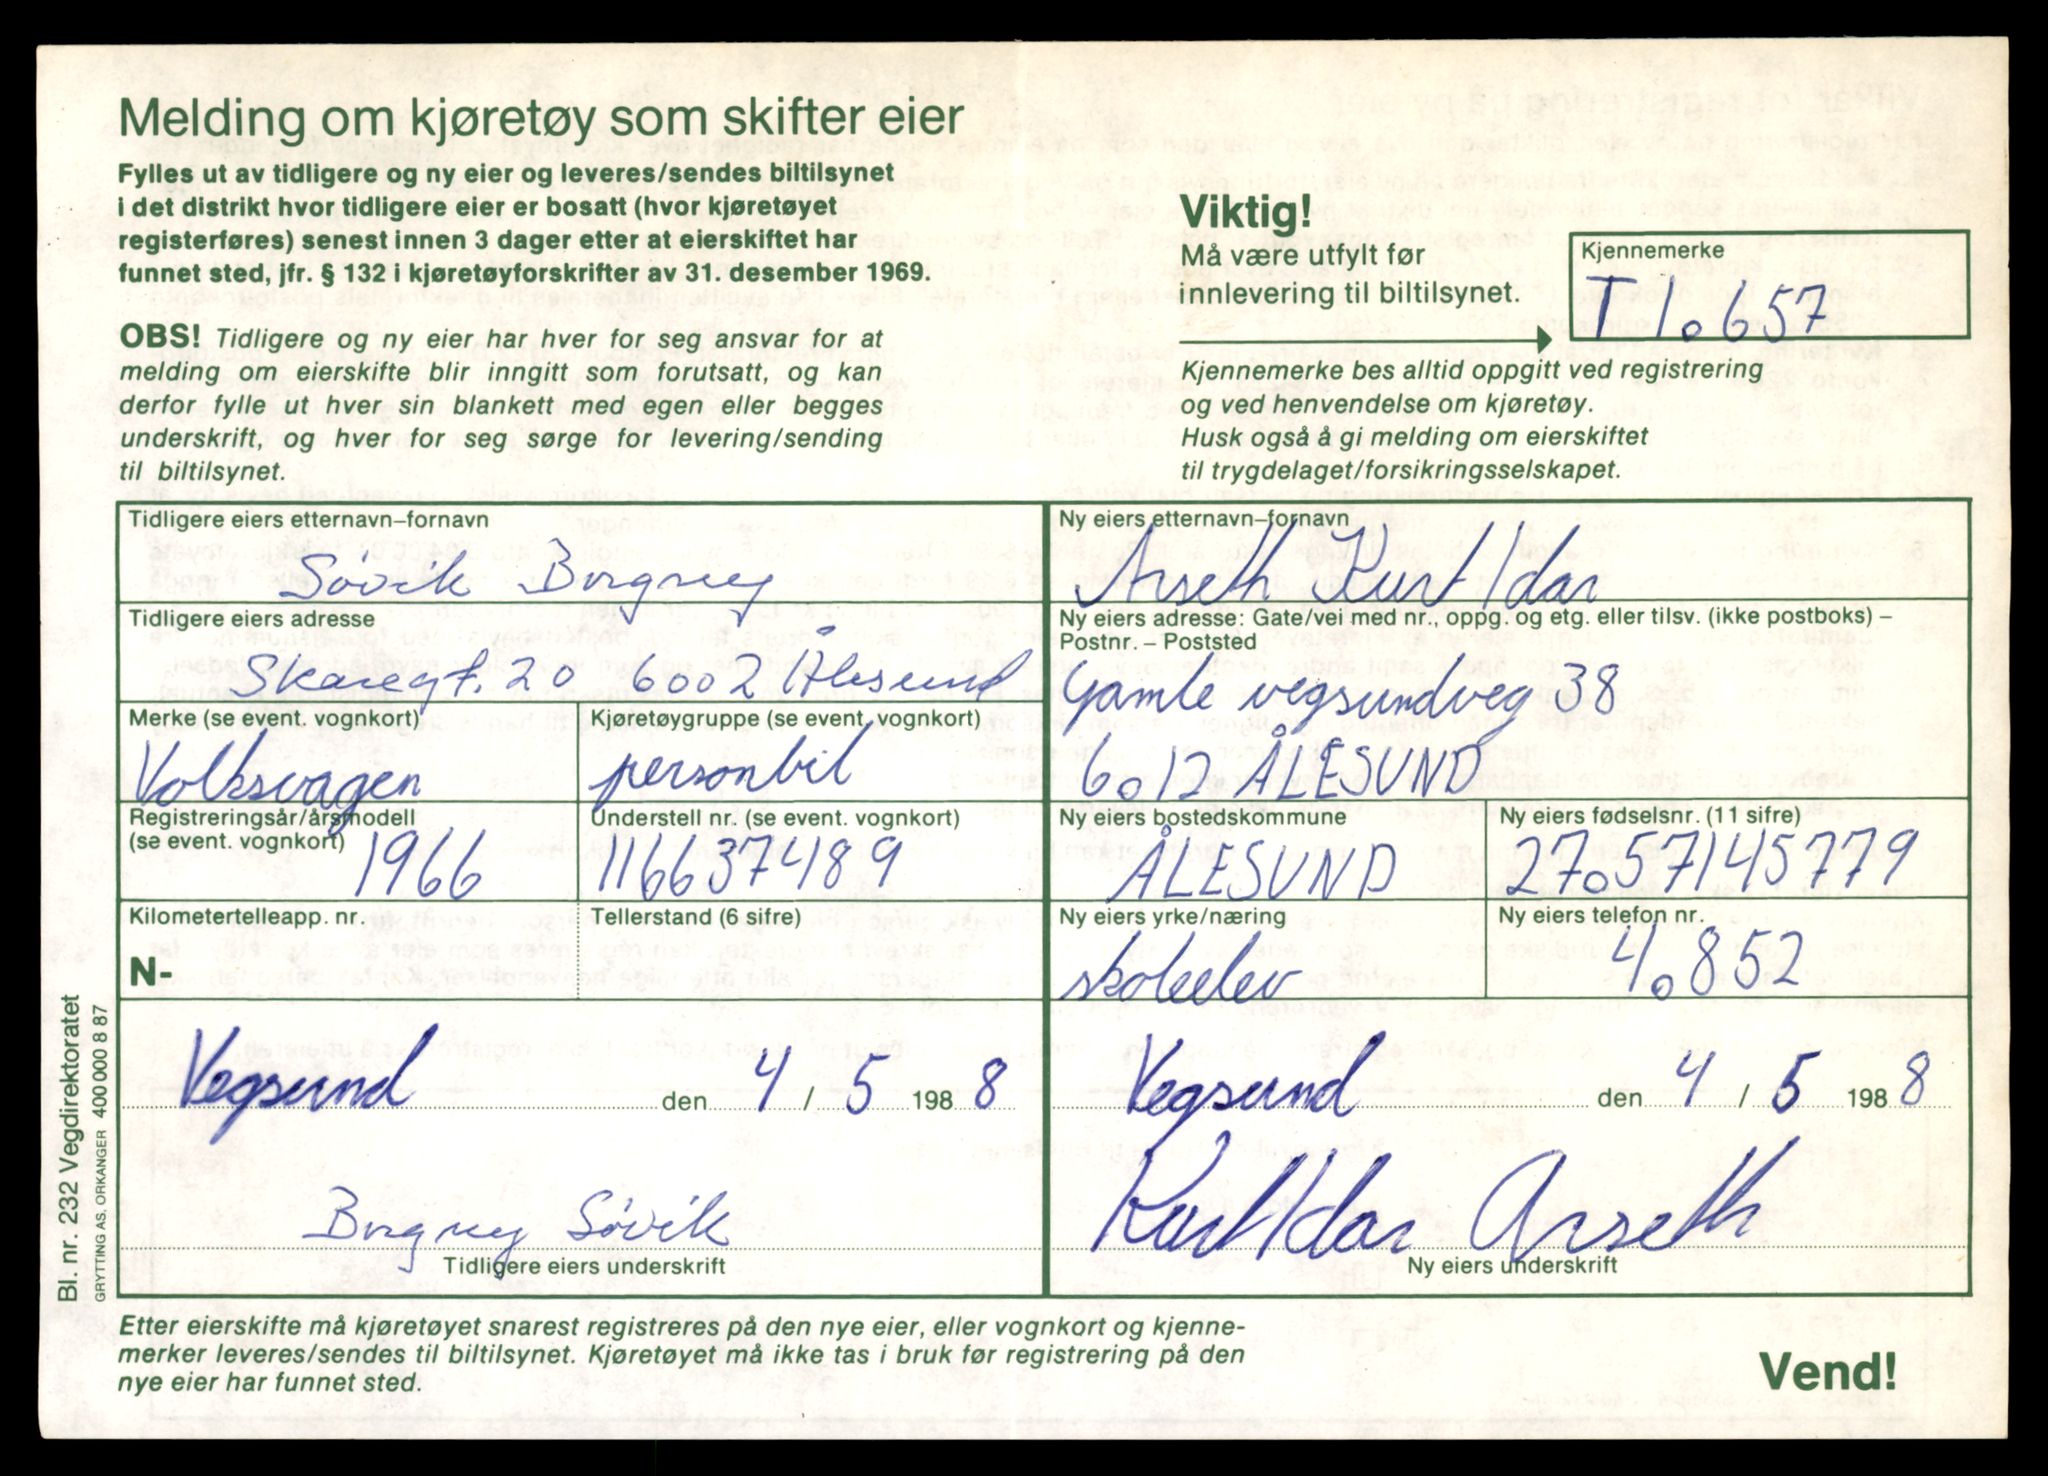 Melding om kjøretøy som skifter eier
Fylles ut av tidligere og ny eier og leveres/sendes biltilsynet
i det distrikt hvor tidligere eier er bosatt (hvor kjøretøyet
registerføres) senest innen 3 dager etter at eierskiftet har
funnet sted, jfr. § 132 i kjøretøyforskrifter av 31. desember 1969.
OBS! Tidligere og ny eier har hver for seg ansvar for at
melding om eierskifte blir inngitt som forutsatt, og kan
derfor fylle ut hver sin blankett med egen eller begges
underskrift, og hver for seg sørge for levering/sending
til biltilsynet.
Viktig!
Må være utfylt før
innlevering til biltilsynet.
Kjennemerke
T 10657
Kjennemerke bes alltid oppgitt ved registrering
og ved henvendelse om kjøretøy.
Husk også å gi melding om eierskiftet
til trygdelaget/forsikringsselskapet.
Tidligere eiers etternavn–fornavn
Søvik Borgney
Tidligere eiers adresse
Skaregt. 20 6002 Ålesund
Merke (se event. vognkort)
Volkswagen
Kjøretøygruppe (se event. vognkort)
personbil
Registreringsår/årsmodell
(se event. vognkort)
1966
Understell nr. (se event. vognkort)
116637489
Kilometertelleapp. nr.
N-
Tellerstand (6 sifre)
Vegsund den 4 / 5 198 8
Borgney Søvik
Tidligere eiers underskrift
Ny eiers etternavn–fornavn
Arseth Kurt Idar
Ny eiers adresse: Gate/vei med nr., oppg. og etg. eller tilsv. (ikke postboks) –
Postnr. – Poststed
Gamle vegsundveg 38
6012 ÅLESUND
Ny eiers bostedskommune
ÅLESUND
Ny eiers fødselsnr. (11 sifre)
27057145779
Ny eiers yrke/næring
skoleelev
Ny eiers telefon nr.
40852
Vegsund den 4 / 5 198 8
Kurt Idar Arseth
Ny eiers underskrift
Etter eierskifte må kjøretøyet snarest registreres på den nye eier, eller vognkort og kjenne-
merker leveres/sendes til biltilsynet. Kjøretøyet må ikke tas i bruk før registrering på den
nye eier har funnet sted.
Vend!
Bl. nr. 232 Vegdirektoratet
GRYTTING AS, ORKANGER 400 000 8 87